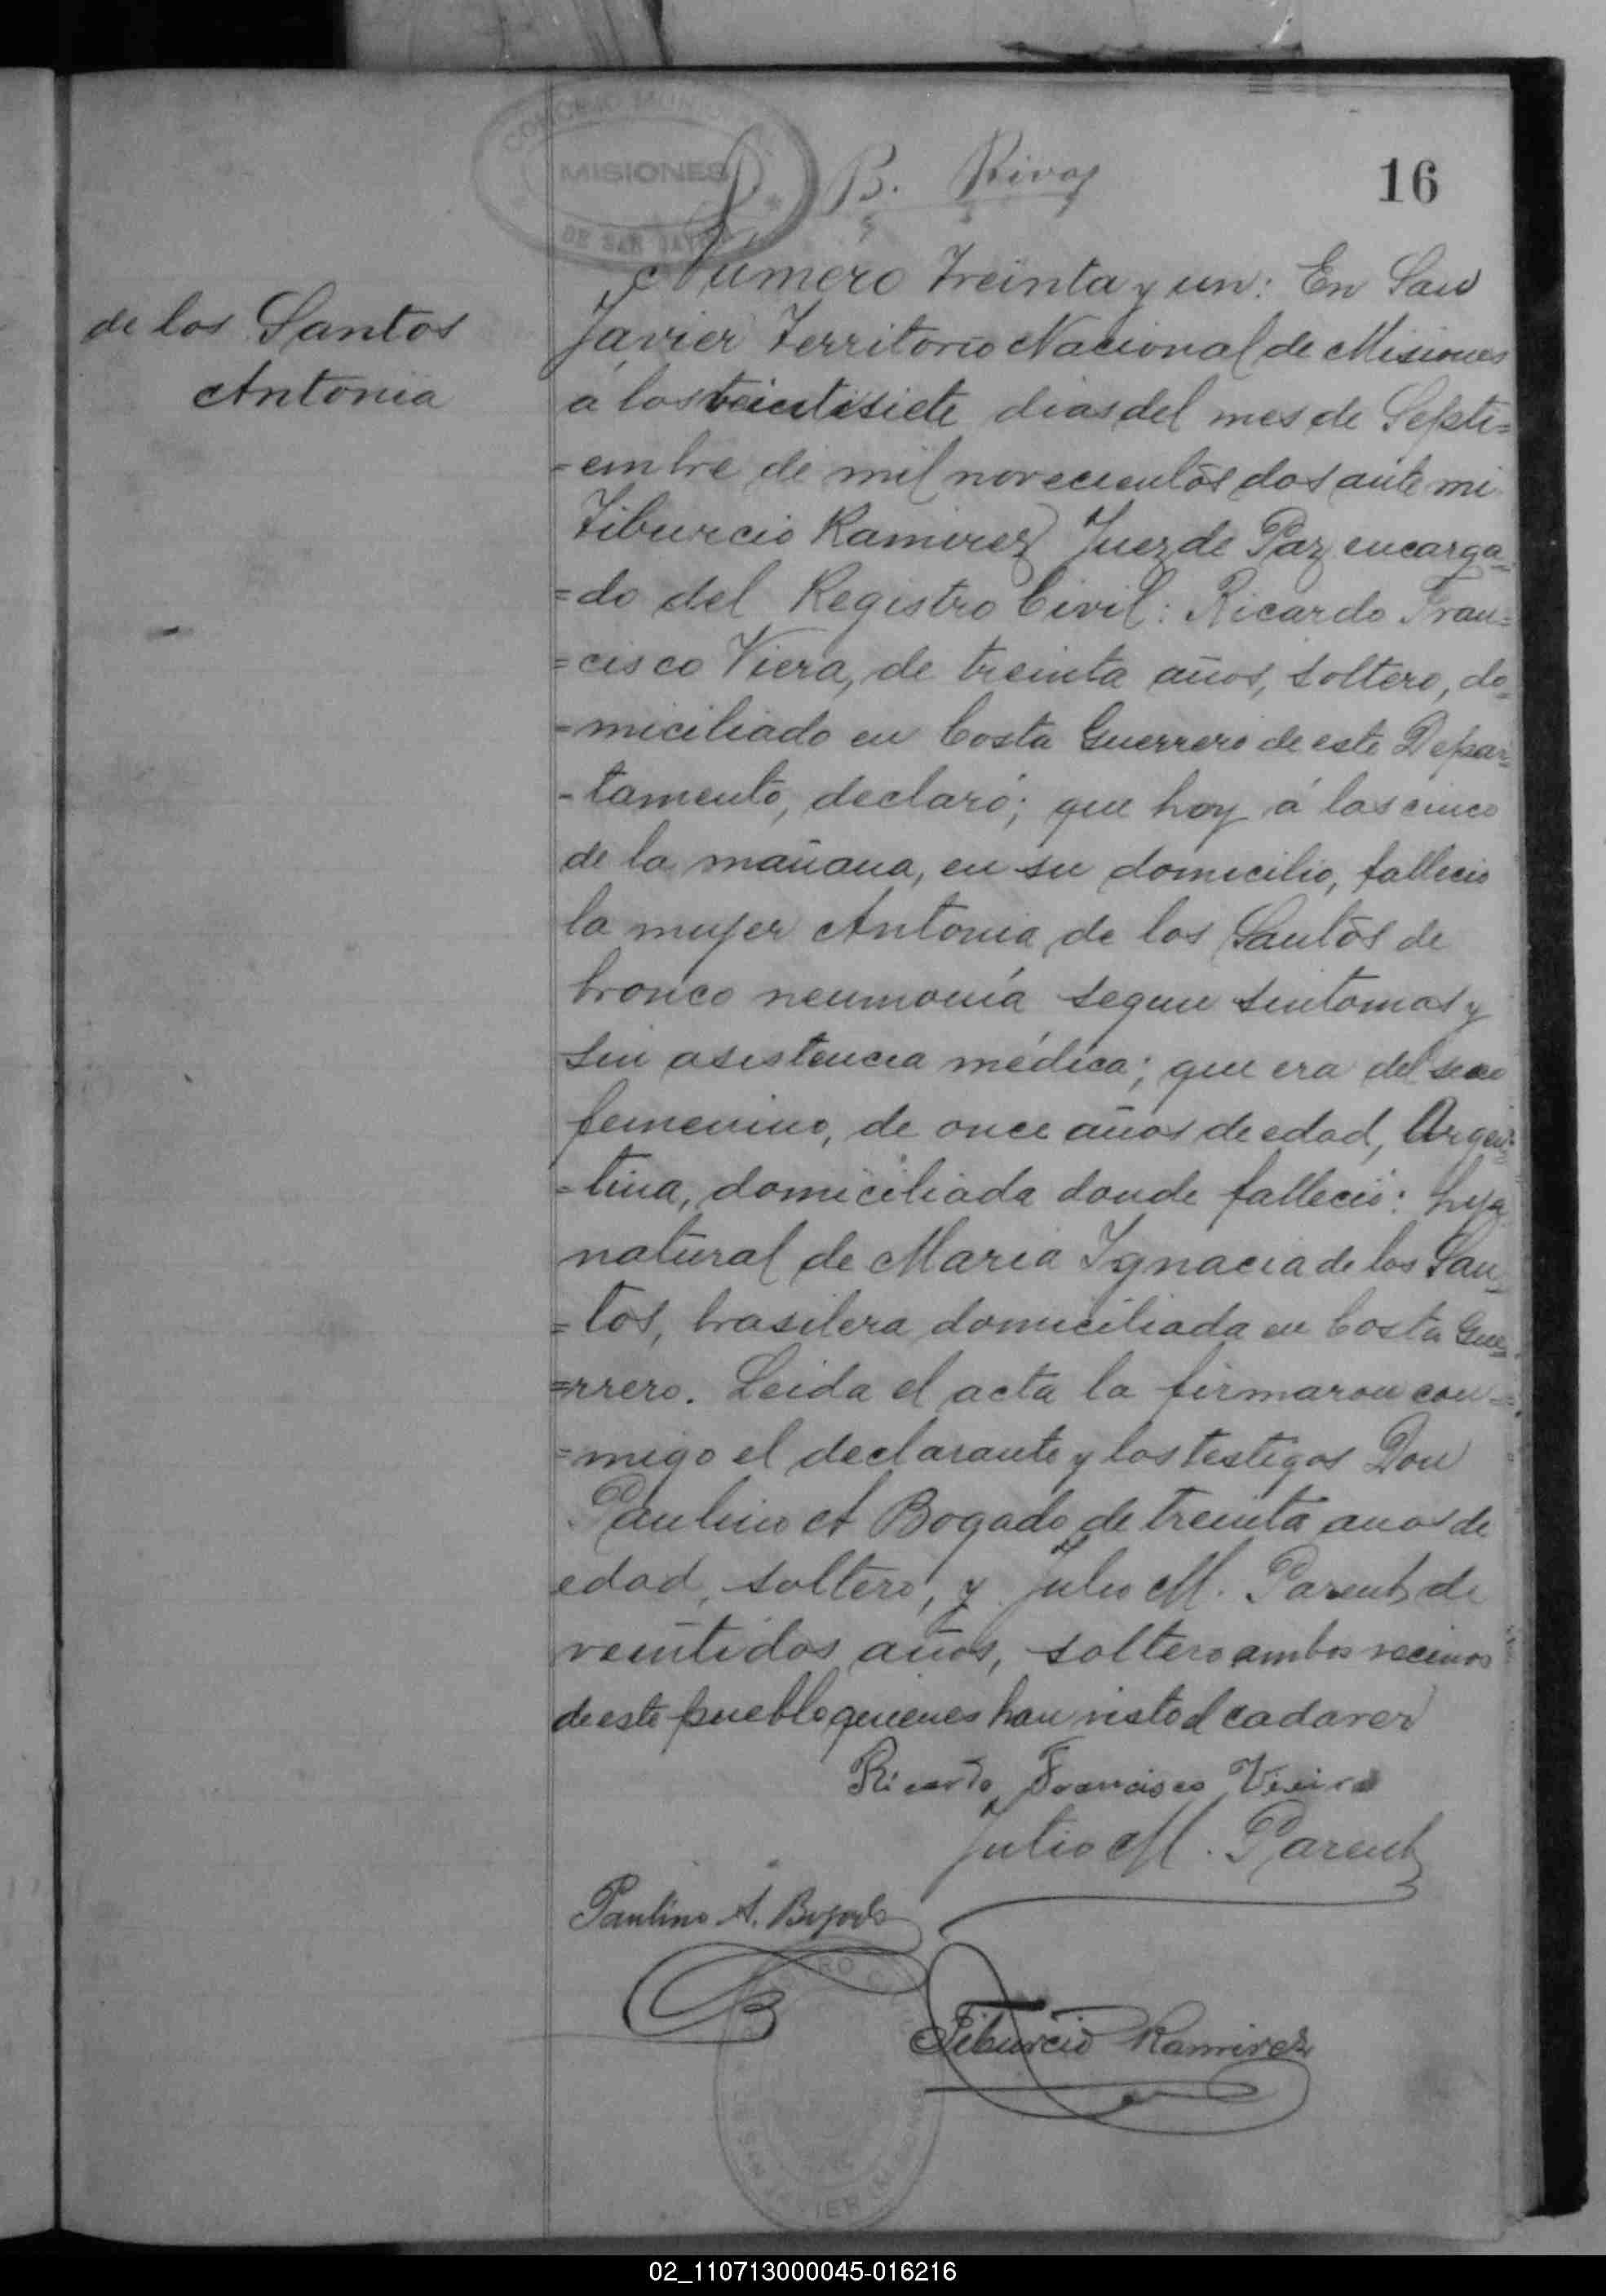 CONCEJO MUNICIPAL
MISIONES
DE SAN JAVIER
B. Rivas
16
de los Santos
Antonia
Numero Treinta y un: En San
Javier Territorio Nacional de Misiones
á los veintisiete dias del mes de Septi=
=embre de mil novecientos dos ante mi
Tiburcio Ramirez Juez de Paz encarga=
=do del Registro Civil: Ricardo Fran=
=cisco Viera, de treinta años, soltero, do=
=miciliado en Costa Guerrero de este Depar=
-tamento, declaró; que hoy á las cinco
de la mañana, en su domicilio, fallecio
la mujer Antonia de los Santos de
bronco neumonía segun sintomas y
sin asistencia médica; que era del sexo
femenino, de once años de edad, Argen=
=tina, domiciliada donde falleció: hija
natural de Maria Ignacia de los San=
=tos, brasilera domiciliada en Costa Gue=
=rrero. Leida el acta la firmaron con=
=migo el declarante y los testigos Don
Paulino A Bogado de treinta anos de
edad, soltero, y Julio M. Parent de
veintidos años, soltero ambos vecinos
de este pueblo quienes han visto el cadaver
Ricardo Francisco Vieira
Julio M. Parent
Paulino A. Bogado
Tiburcio Ramirez
SAN JAVIER (MISIONES)
02_110713000045-016216